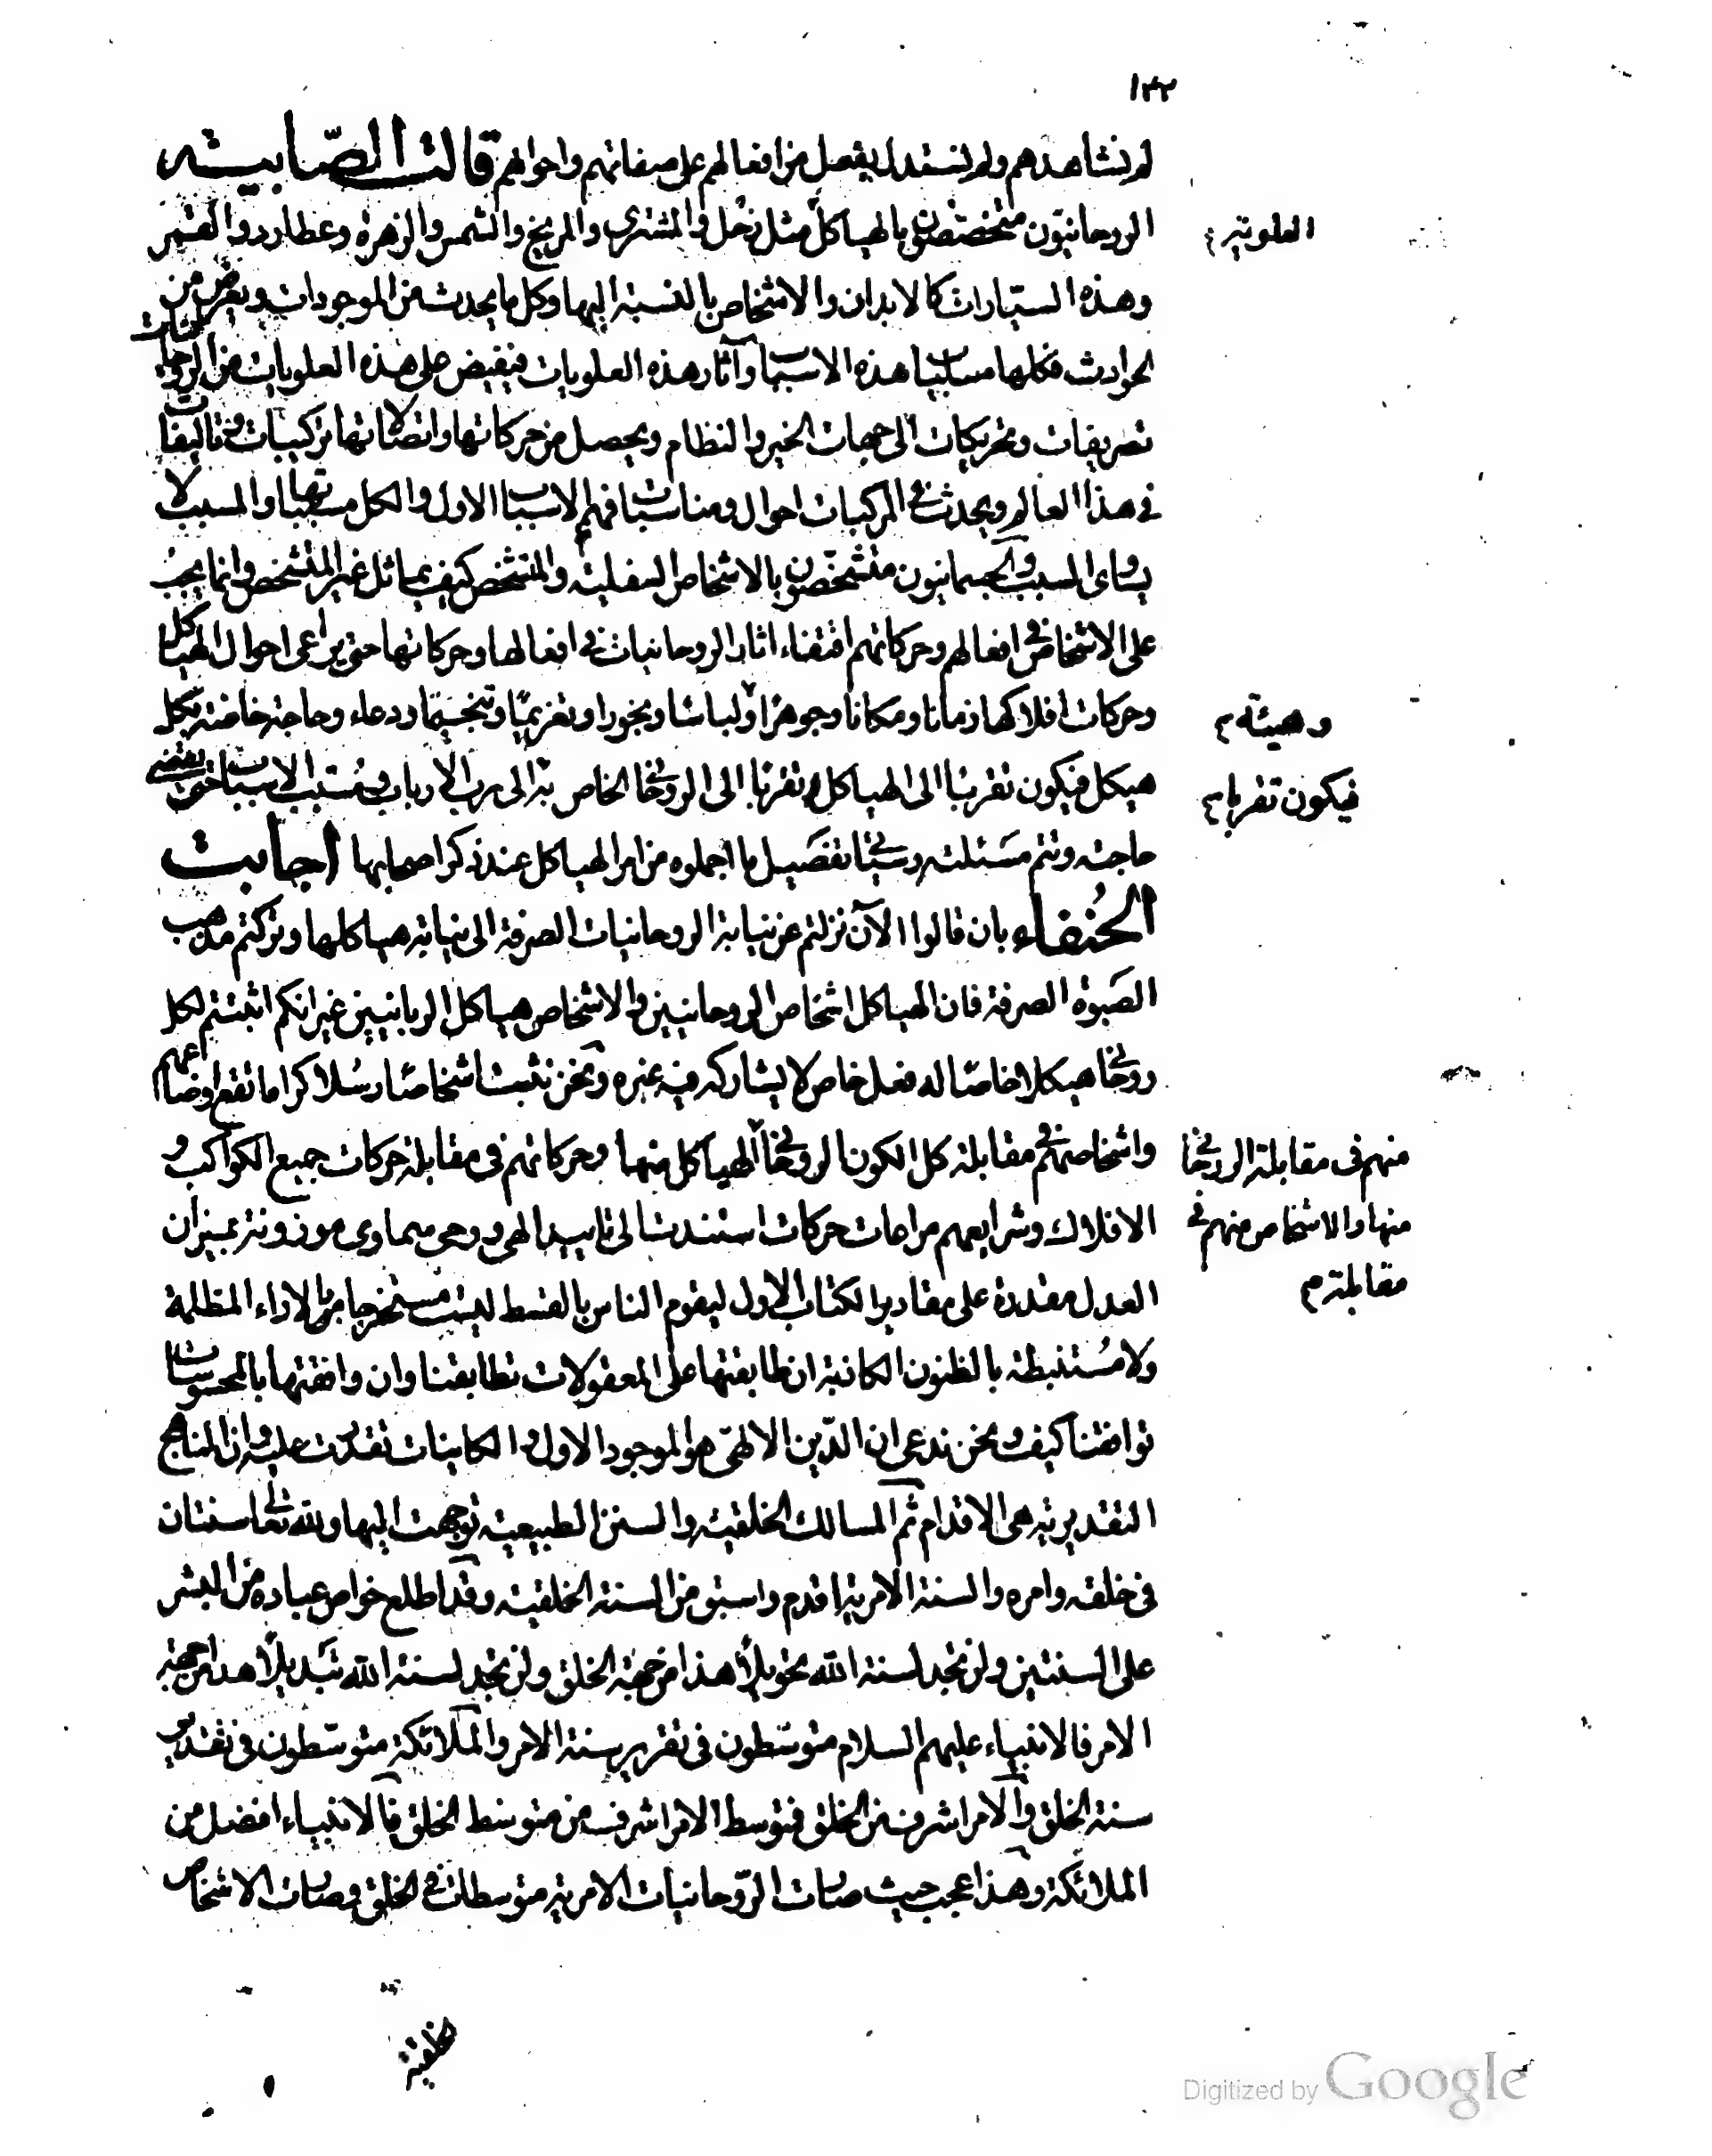 ١٣٢
لم نشاهدهم ولم نستدل بفصل من افعالهم على صفاتهم واحوالهم قالت الصّابيته
الروحانيّون متخصّصون بالهياكل مثل زحل والمشترى والمريخ والشمس والزهرة وعطارد والقمر
العلوية
وهذه السيّارات كالابدان والاشخاص بالنسبة اليها وكل ما يحدث من الموجودات ويعرض من
الحوادث فكلها مسببات هذه الاسباب وآثار هذه العلويات فيفيض على هذه العلويات من الروحانيات
تصريفات وتحريكات الى جهات الخير والنظام ويحصل من حركاتها واتصالاتها تركيبات وتاليفات
فى هذا العالم ويحدث فى المركبات احوال ومناسبات فهم الاسباب الاول والكل مسبباتها والمسبب لا
يساوى المسبب والجسمانيون متشخّصون بالاشخاص السفلية والمتشخص كيف يماثل غير المتشخص وانما يجبُ
على الاشخاص فى افعالهم وحركاتهم اقتفاء اثار الروحانيات فى افعالها وحركاتها حتى يراعى احوال الهياكل
وحركات افلاكها زمانا ومكانا وجوهرًا ولباسًا وبخورا وتعزيمًا وتنجيمًا ودعاء وحاجة خاصّة بكل
وهيئة
هيكل فيكون تقربًا الى الهياكل تقربًا الى الروحانى الخاص به الى رب الارباب ومُسبب الاسباب حتى يقضى
فيكون تقربا
حاجته وتتم مَسئلته وسياتى تفصَيل ما اجملوه من امر الهياكل عند ذكر اصحابها اجابت
الحُنفاء بان قالوا الآن نزلتم عن نيابة الروحانيات الصرفة الى نيابة هياكلها وتركتم مذهب
الصَبوة الصرفة فان الهياكل اشخاص الروحانيين والاشخاص هياكل الربانيين غير انكم اثبتتم لكل
روحانى هيكلا خاصّا له فعل خاص لا يشاركه فيه غيره ونحن نثبت اشخاصًا رسُلا كراما تقع اوضاعهم
واشخاصهم فى مقابلة كل الكون الروحانى الهياكل منها وحركاتهم فى مقابلة حركات جميع الكواكب و
منهم فى مقابلة الروحانى
منها والاشخاص منهم فى
مقابلة
الافلاك وشرايعهم مراعات حركات استندت الى تاييد الهى ووحى سماوى موزونة بميزان
العدل مقدرة على مقادير الكتاب الاول ليقوم الناس بالقسط ليست مستخرجة بالاراء المظلمة
ولا مُستنبطة بالظنون الكاذبة ان طابقتها على المعقولات تطابقتا وان وافقتها بالمحسوسات
توافقتا كيف ونحن ندعى ان الدّين الالهىّ هو الموجود الاول والكاينات تقدرت عليه وان المناهج
التقديرية هى الاقدم ثم المسالك الخلقية والسنن الطبيعية توجهت اليها ولله تعالى سنتان
فى خلقه وامره والسنة الامرية اقدم واسبق من السنة الخلقية وقد اطلع خواص عباده من البشر
على السنتين ولن تجد لسنة الله تحويلًا هذا من جهة الخلق ولن تجد لسنة الله تبَديلًا هذا من جهة
الامر فالانبياء عليهم السلام متوسّطون فى تقرير سنة الامر والملائكة متوسّطون فى تقدير
سنة الخلق والامر اشرف من الخلق فمتوسط الامر اشرف من متوسط الخلق فالانبياء افضل من
الملائكة وهذا عجب حيث صارت الرّوحانيات الامرية متوسطات فى الخلق وصارت الاشخاص
الخلقية
Digitized by Google